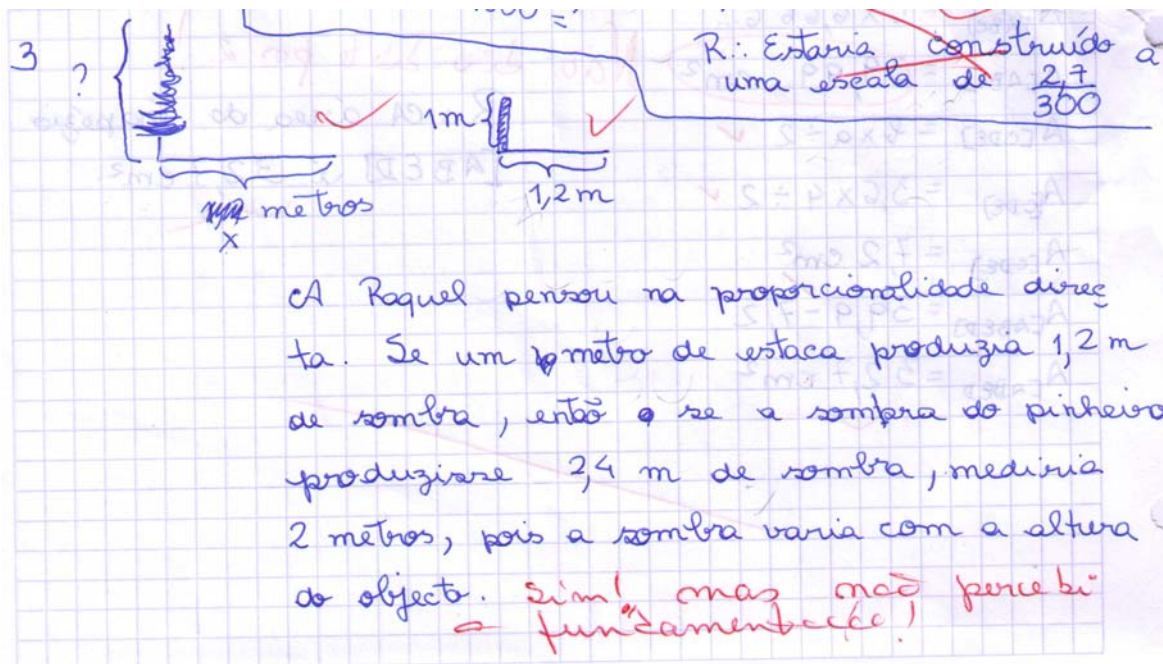 3
?
R.: Estaria construído a
uma escala de 2,7
300
1m
1,2 m
metros
x
A Raquel pensou na proporcionalidade direc
ta. Se um metro de estaca produzia 1,2 m
de sombra, então se a sombra do pinheiro
produzisse 2,4 m de sombra, mediria
2 metros, pois a sombra varia com a altura
do objecto. Sim! mas não percebi
a fundamentação!